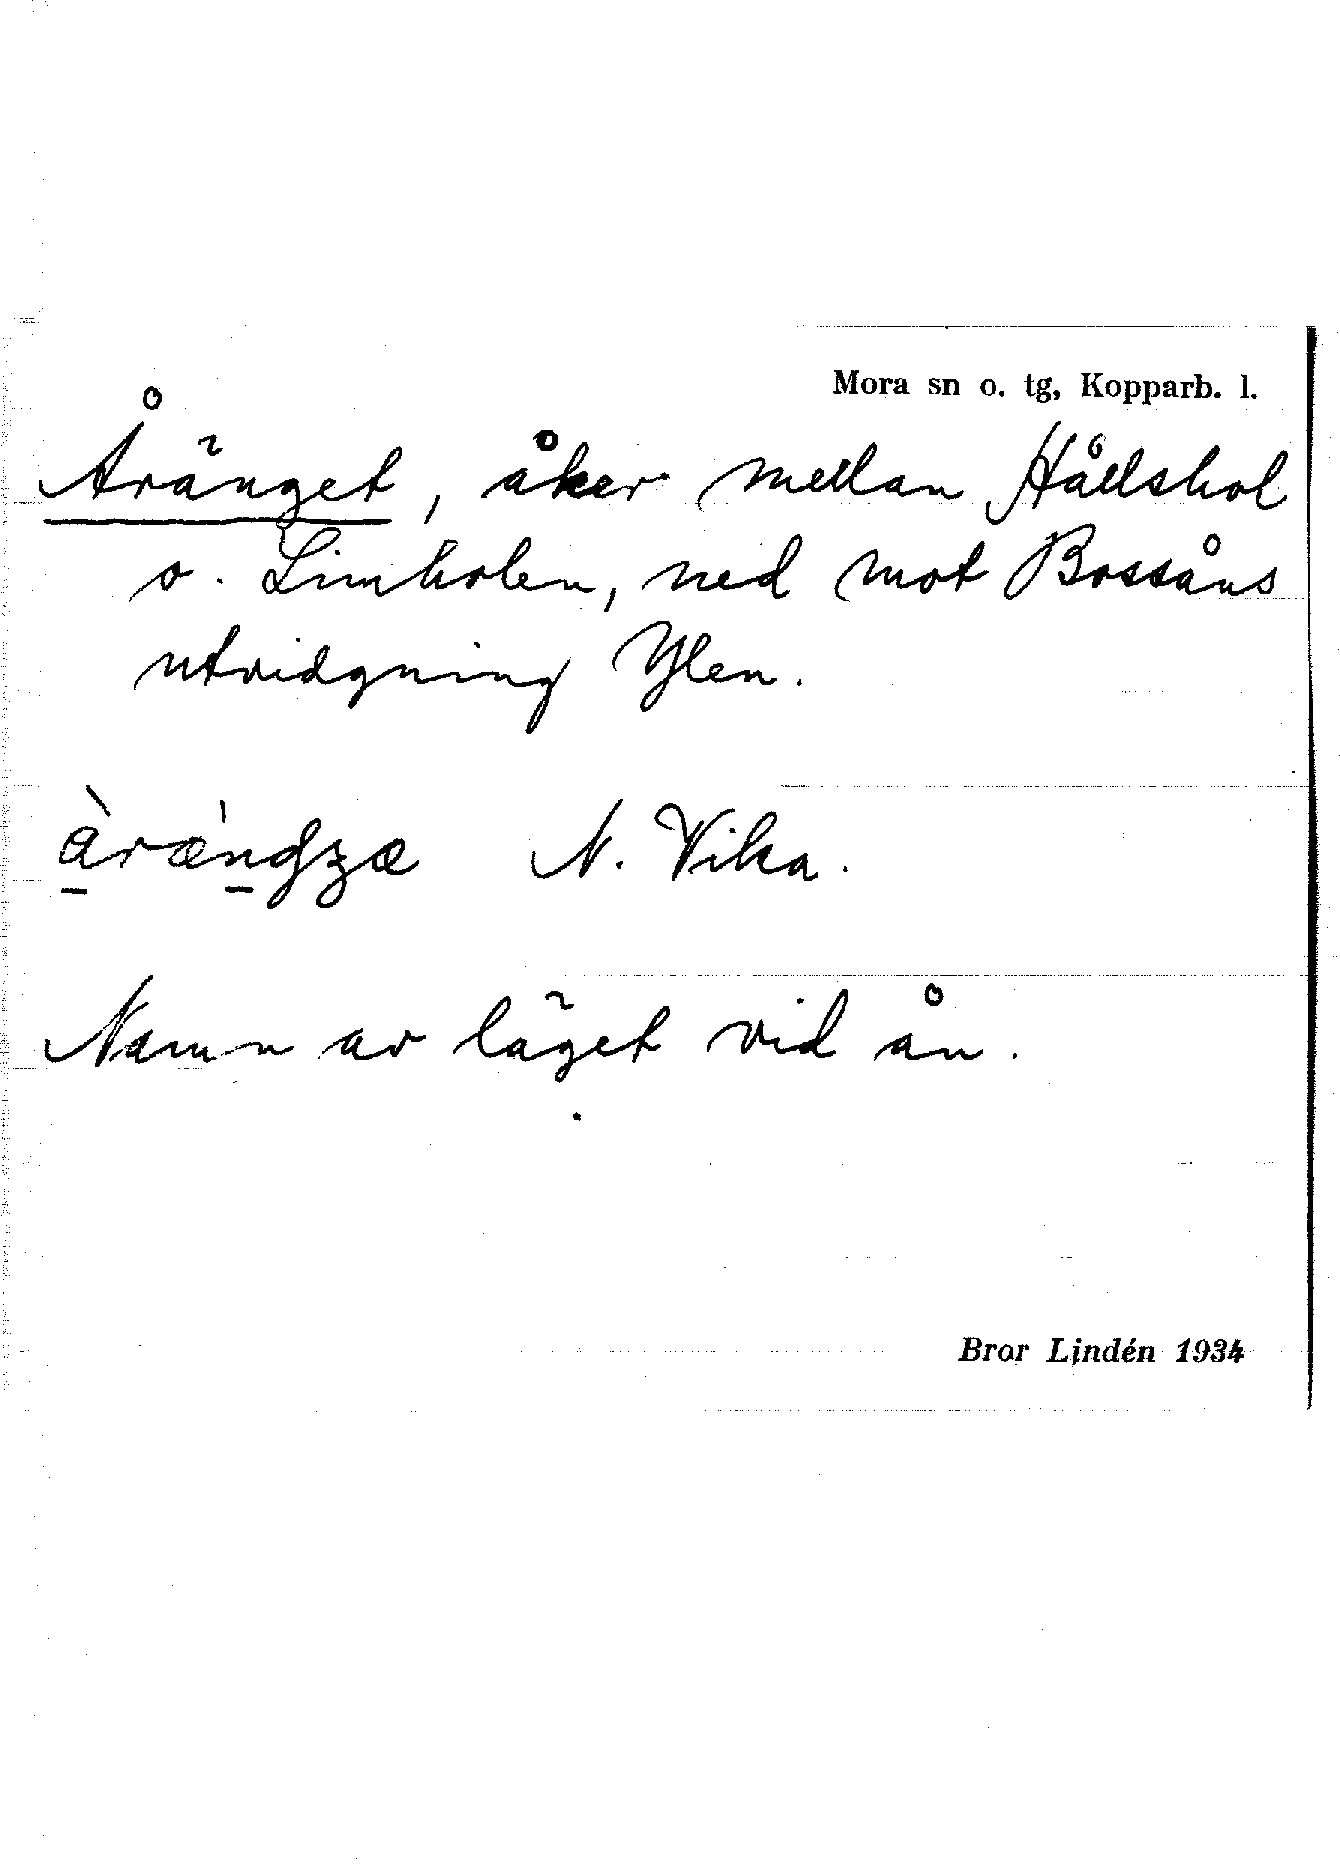 Mora sn o. tg, Kopparb. l.
Åränget, åker mellan Hållshol
o. Limholen, ned mot Bossåns
utvidgning Ylen.
N. Vika.
Namn av läget vid ån.
Bror Lindén 1934